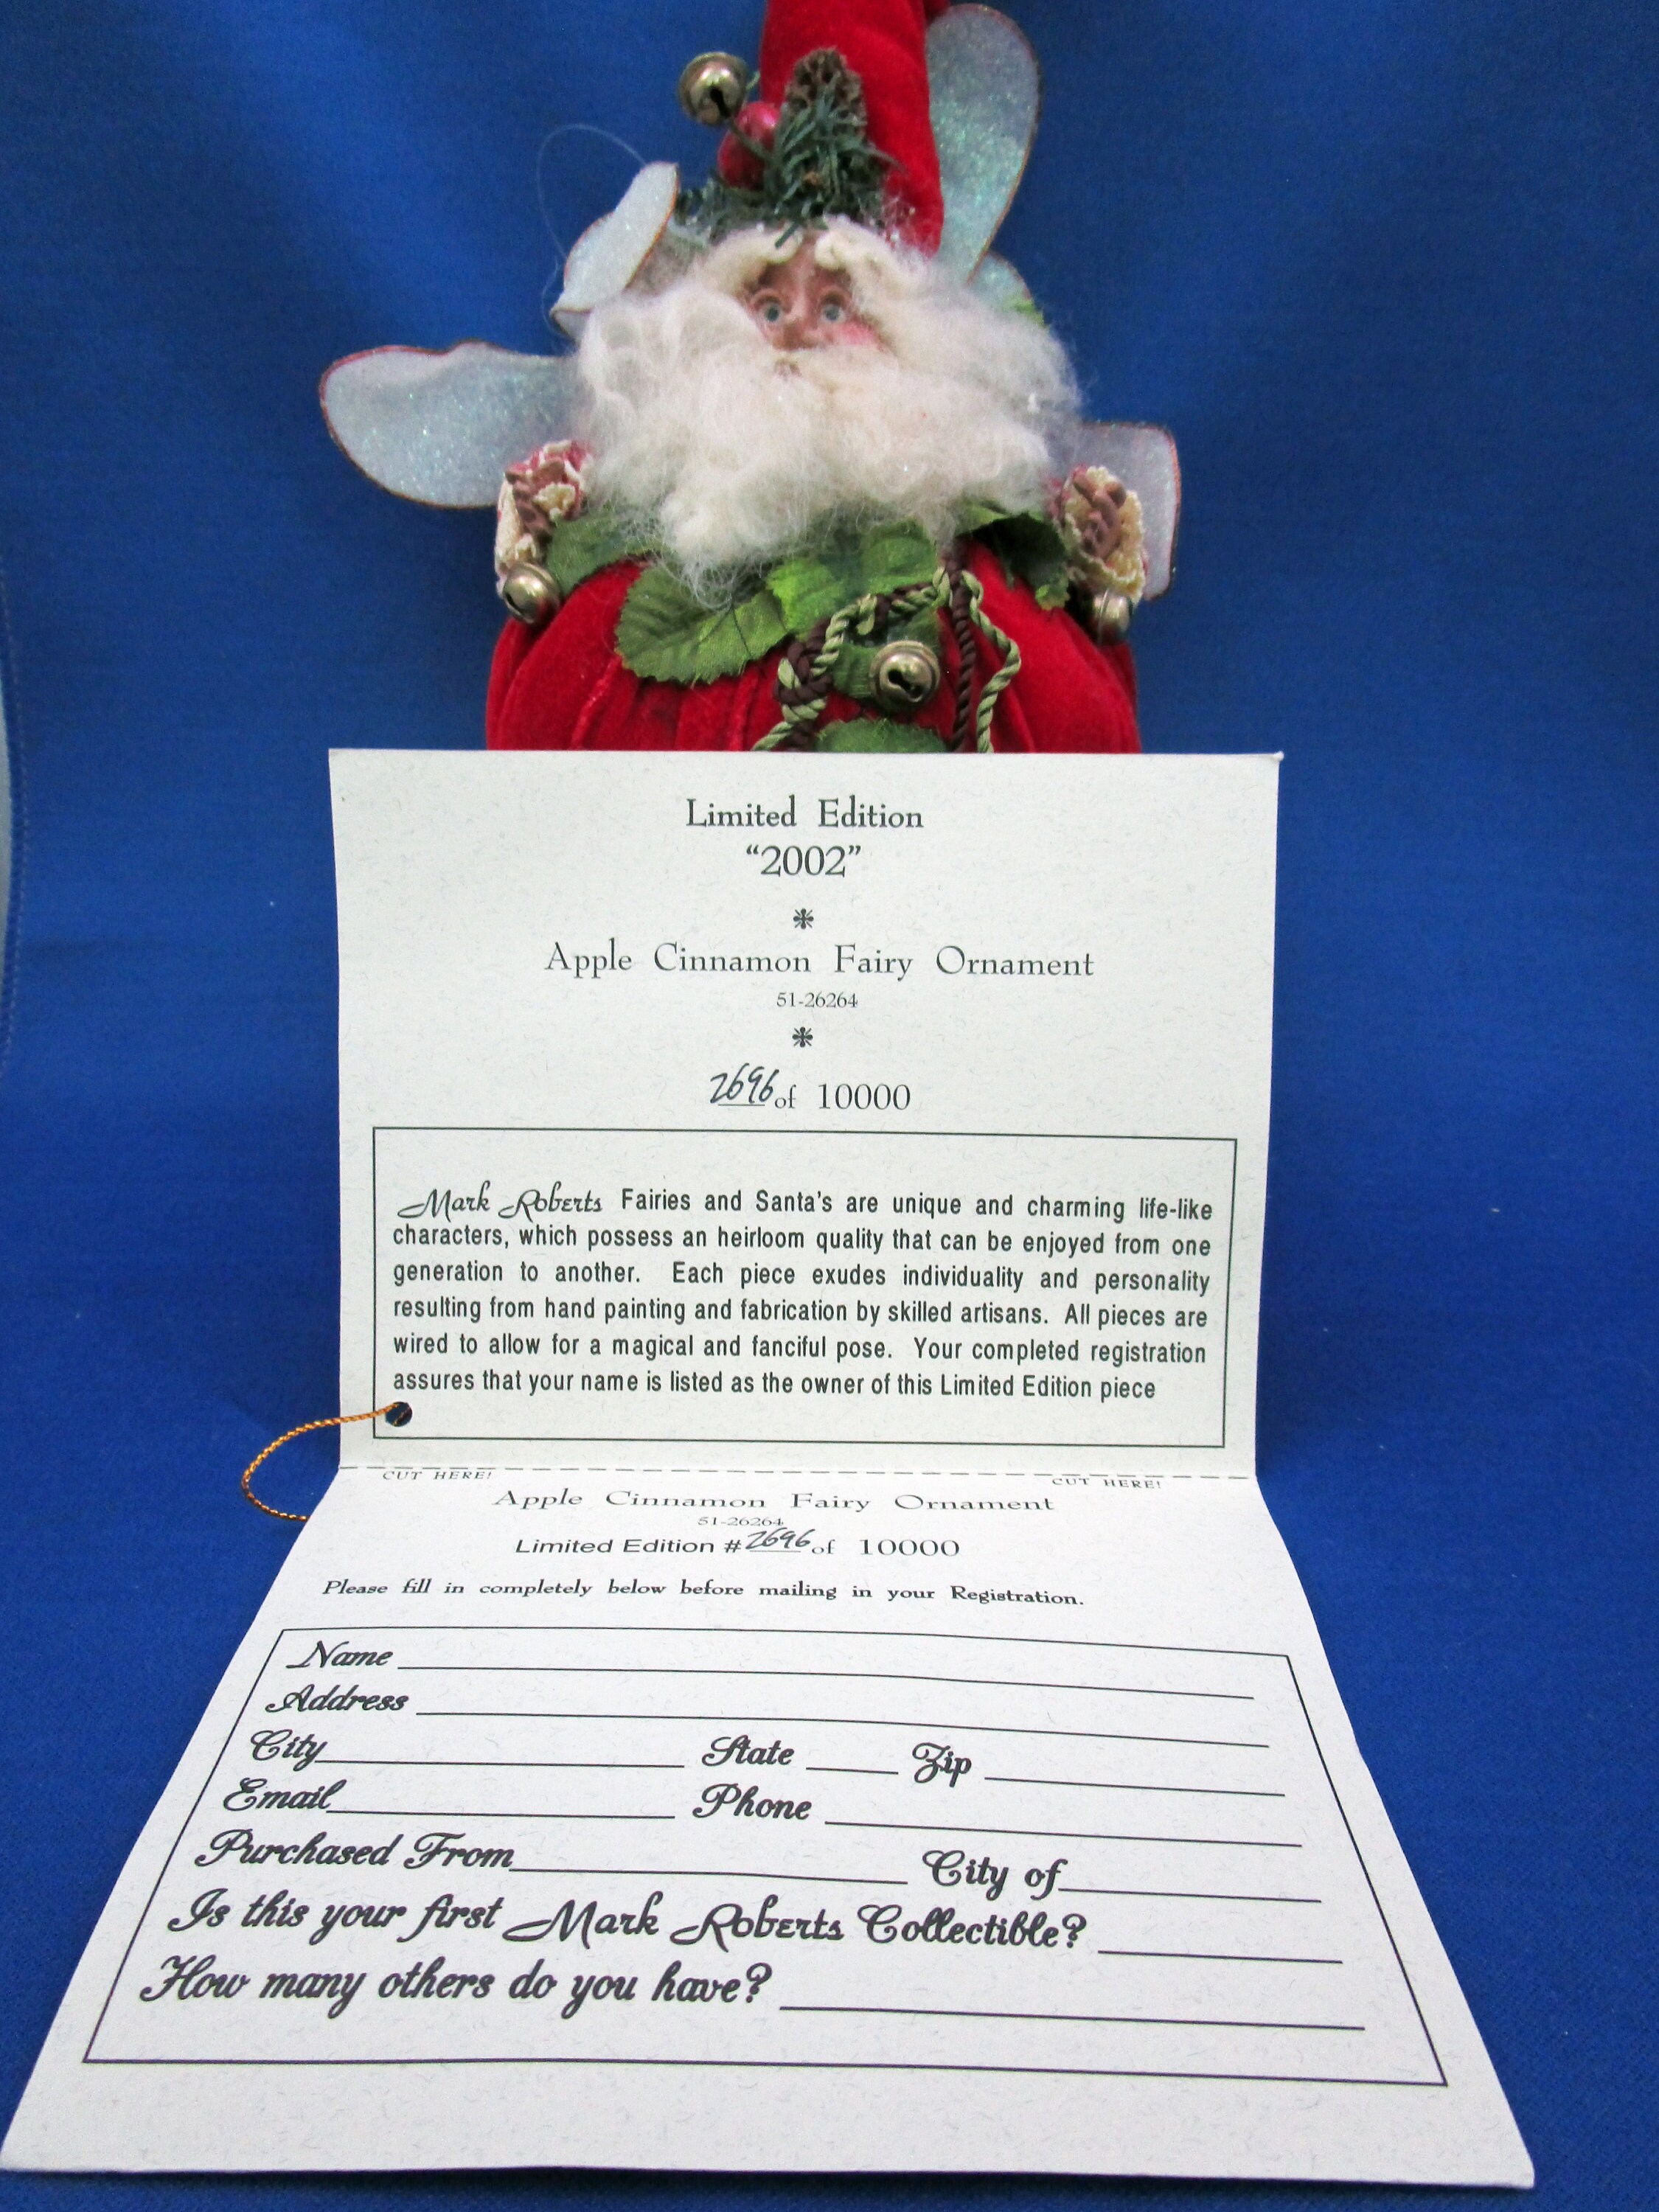 Limited Edition
"2002"
Apple Cinnamon Fairy Ornament
51-26264
2696 of 10000
Mark Roberts Fairies and Santa's are unique and charming life-like
characters, which possess an heirloom quality that can be enjoyed from one
generation to another. Each piece exudes individuality and personality
resulting from hand painting and fabrication by skilled artisans. All pieces are
wired to allow for a magical and fanciful pose. Your completed registration
assures that your name is listed as the owner of this Limited Edition piece
CUT HERE! CUT HERE!
Apple Cinnamon Fairy Ornament
51-26264
Limited Edition # 2696 of 10000
Please fill in completely below before mailing in your Registration.
Name
Address
City State Zip
Email Phone
Purchased From City of
Is this your first Mark Roberts Collectible?
How many others do you have?